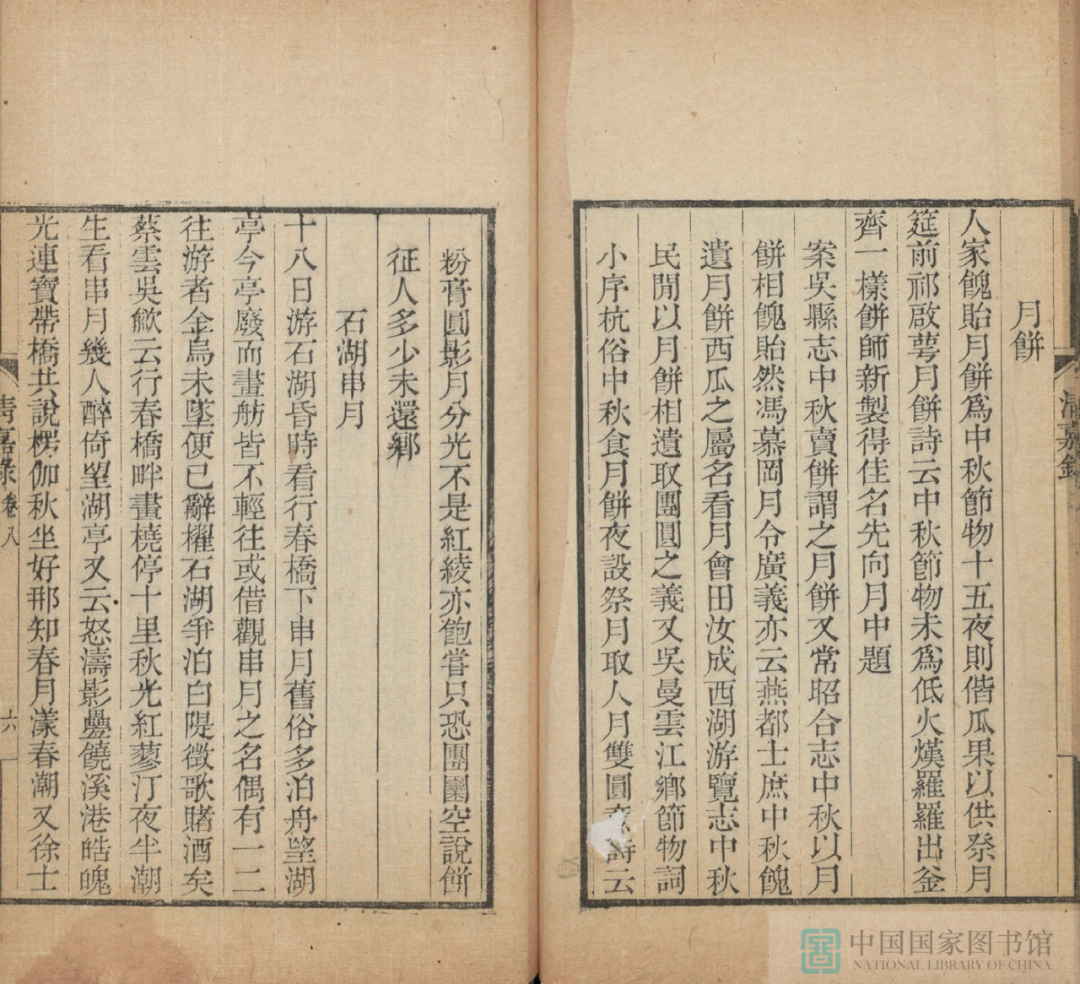 月餠
人家餽貽月餠爲中秋節物十五夜則偕瓜果以供祭月
筵前祁啟萼月餠詩云中秋節物未爲低火熯羅羅出釜
齊一樣餠師新製得佳名先向月中題
案吳縣志中秋賣餠謂之月餠又常昭合志中秋以月
餠相餽貽然馮慕岡月令廣義亦云燕都士庶中秋餽
遺月餠西瓜之屬名看月會田汝成西湖游覽志中秋
民閒以月餠相遺取團圓之義又吳曼雲江鄉節物詞
小序杭俗中秋食月餠夜設祭月取人月雙圓意詩云
清嘉錄
粉膏圓影月分光不是紅綾亦飽嘗只恐團圞空說餠
征人多少未還鄉
石湖串月
十八日游石湖昏時看行春橋下串月舊俗多泊舟望湖
亭今亭廢而畫舫皆不輕往或借觀串月之名偶有一二
往游者金烏未墜便已辭櫂石湖爭泊白隄徵歌賭酒矣
蔡雲吳歈云行春橋畔畫橈停十里秋光紅蓼汀夜半潮
生看串月幾人醉倚望湖亭又云怒濤影疊饒溪港皓魄
光連寶帶橋共說楞伽秋坐好那知春月漾春潮又徐士
清嘉錄 卷八 六
中国国家图书馆
NATIONAL LIBRARY OF CHINA